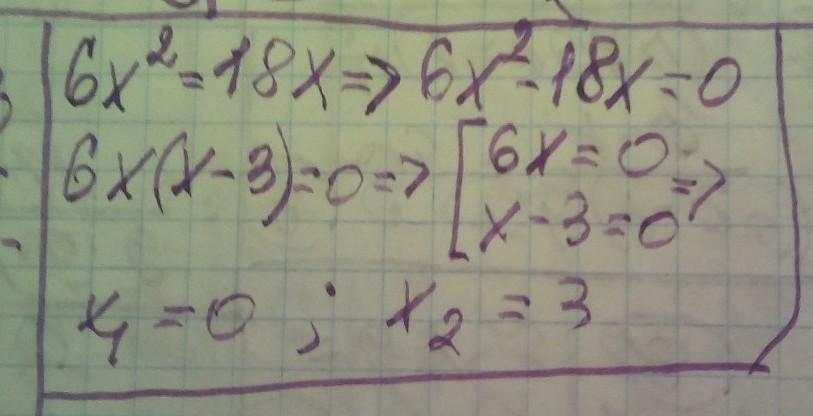 6x² = 18x => 6x² - 18x = 0
6x(x - 3) = 0 => [ 6x = 0
x - 3 = 0 =>
x₁ = 0 ; x₂ = 3